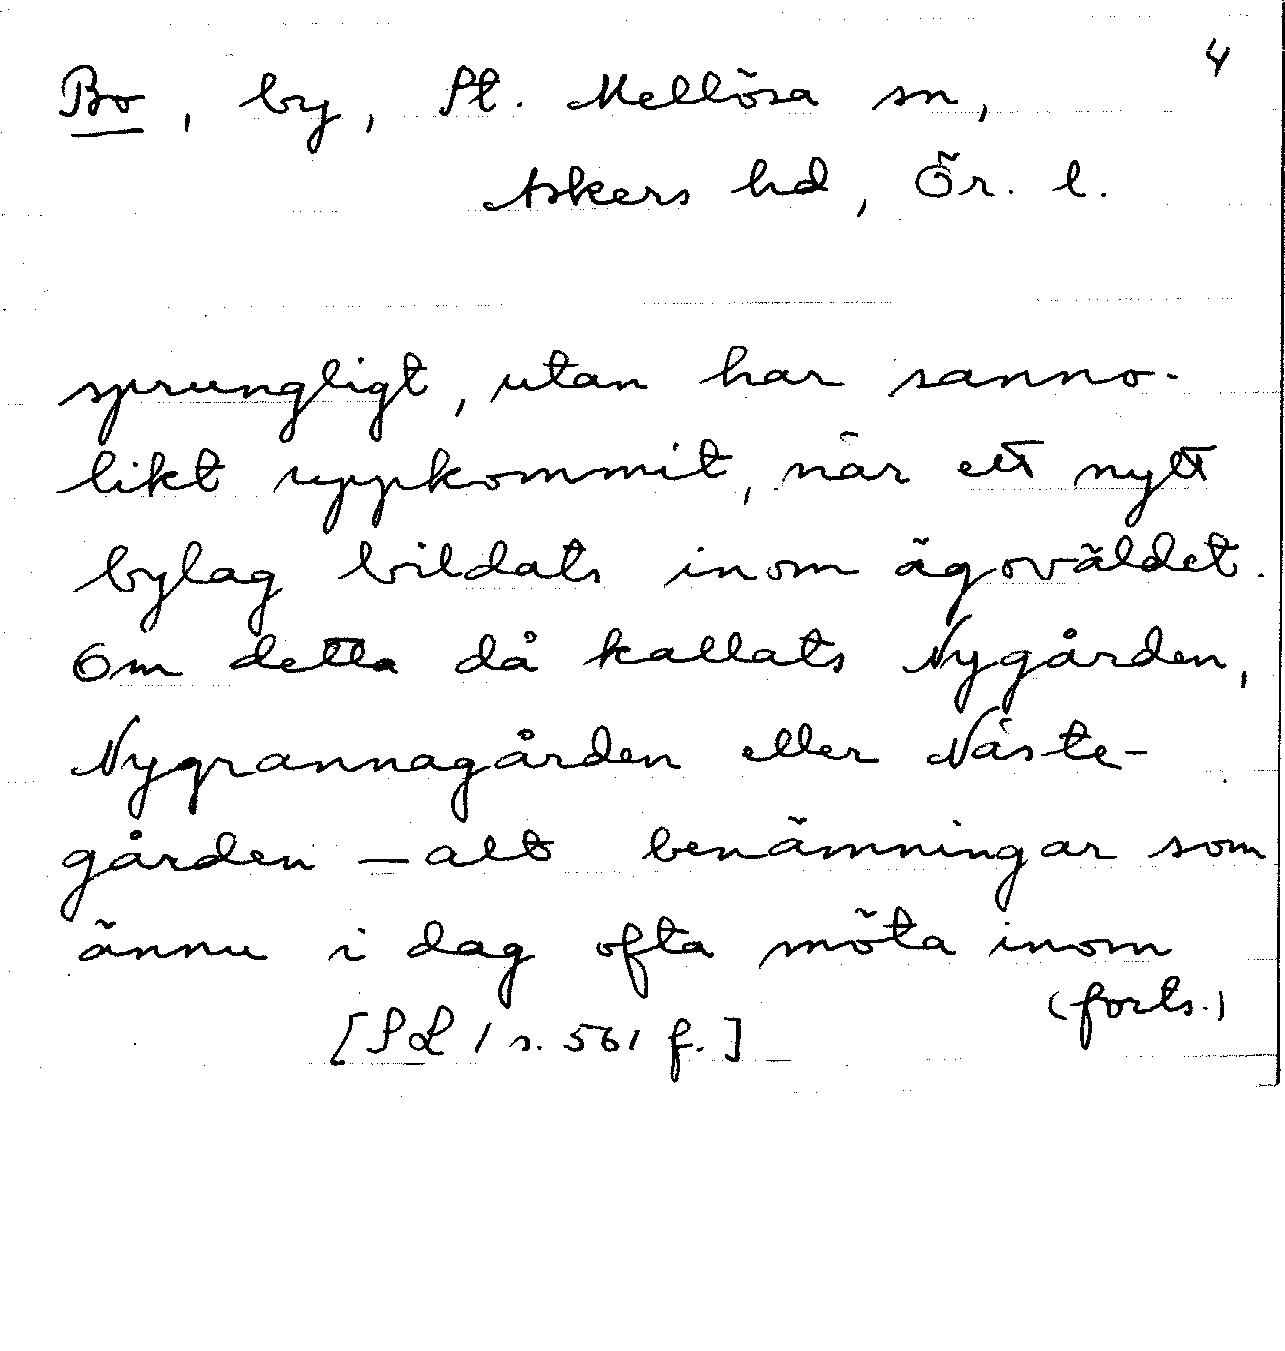 4
Bo, by, St. Mellösa sn,
Askers hd, Ör. l.
sprungligt, utan har sanno-
likt uppkommit, när ett nytt
bylag bildats inom ägoväldet.
Om detta då kallats Nygården,
Nygrannagården eller Näste-
gården – allt benämningar som
ännu i dag ofta möta inom
(forts.)
[SL 1 s. 561 f.]